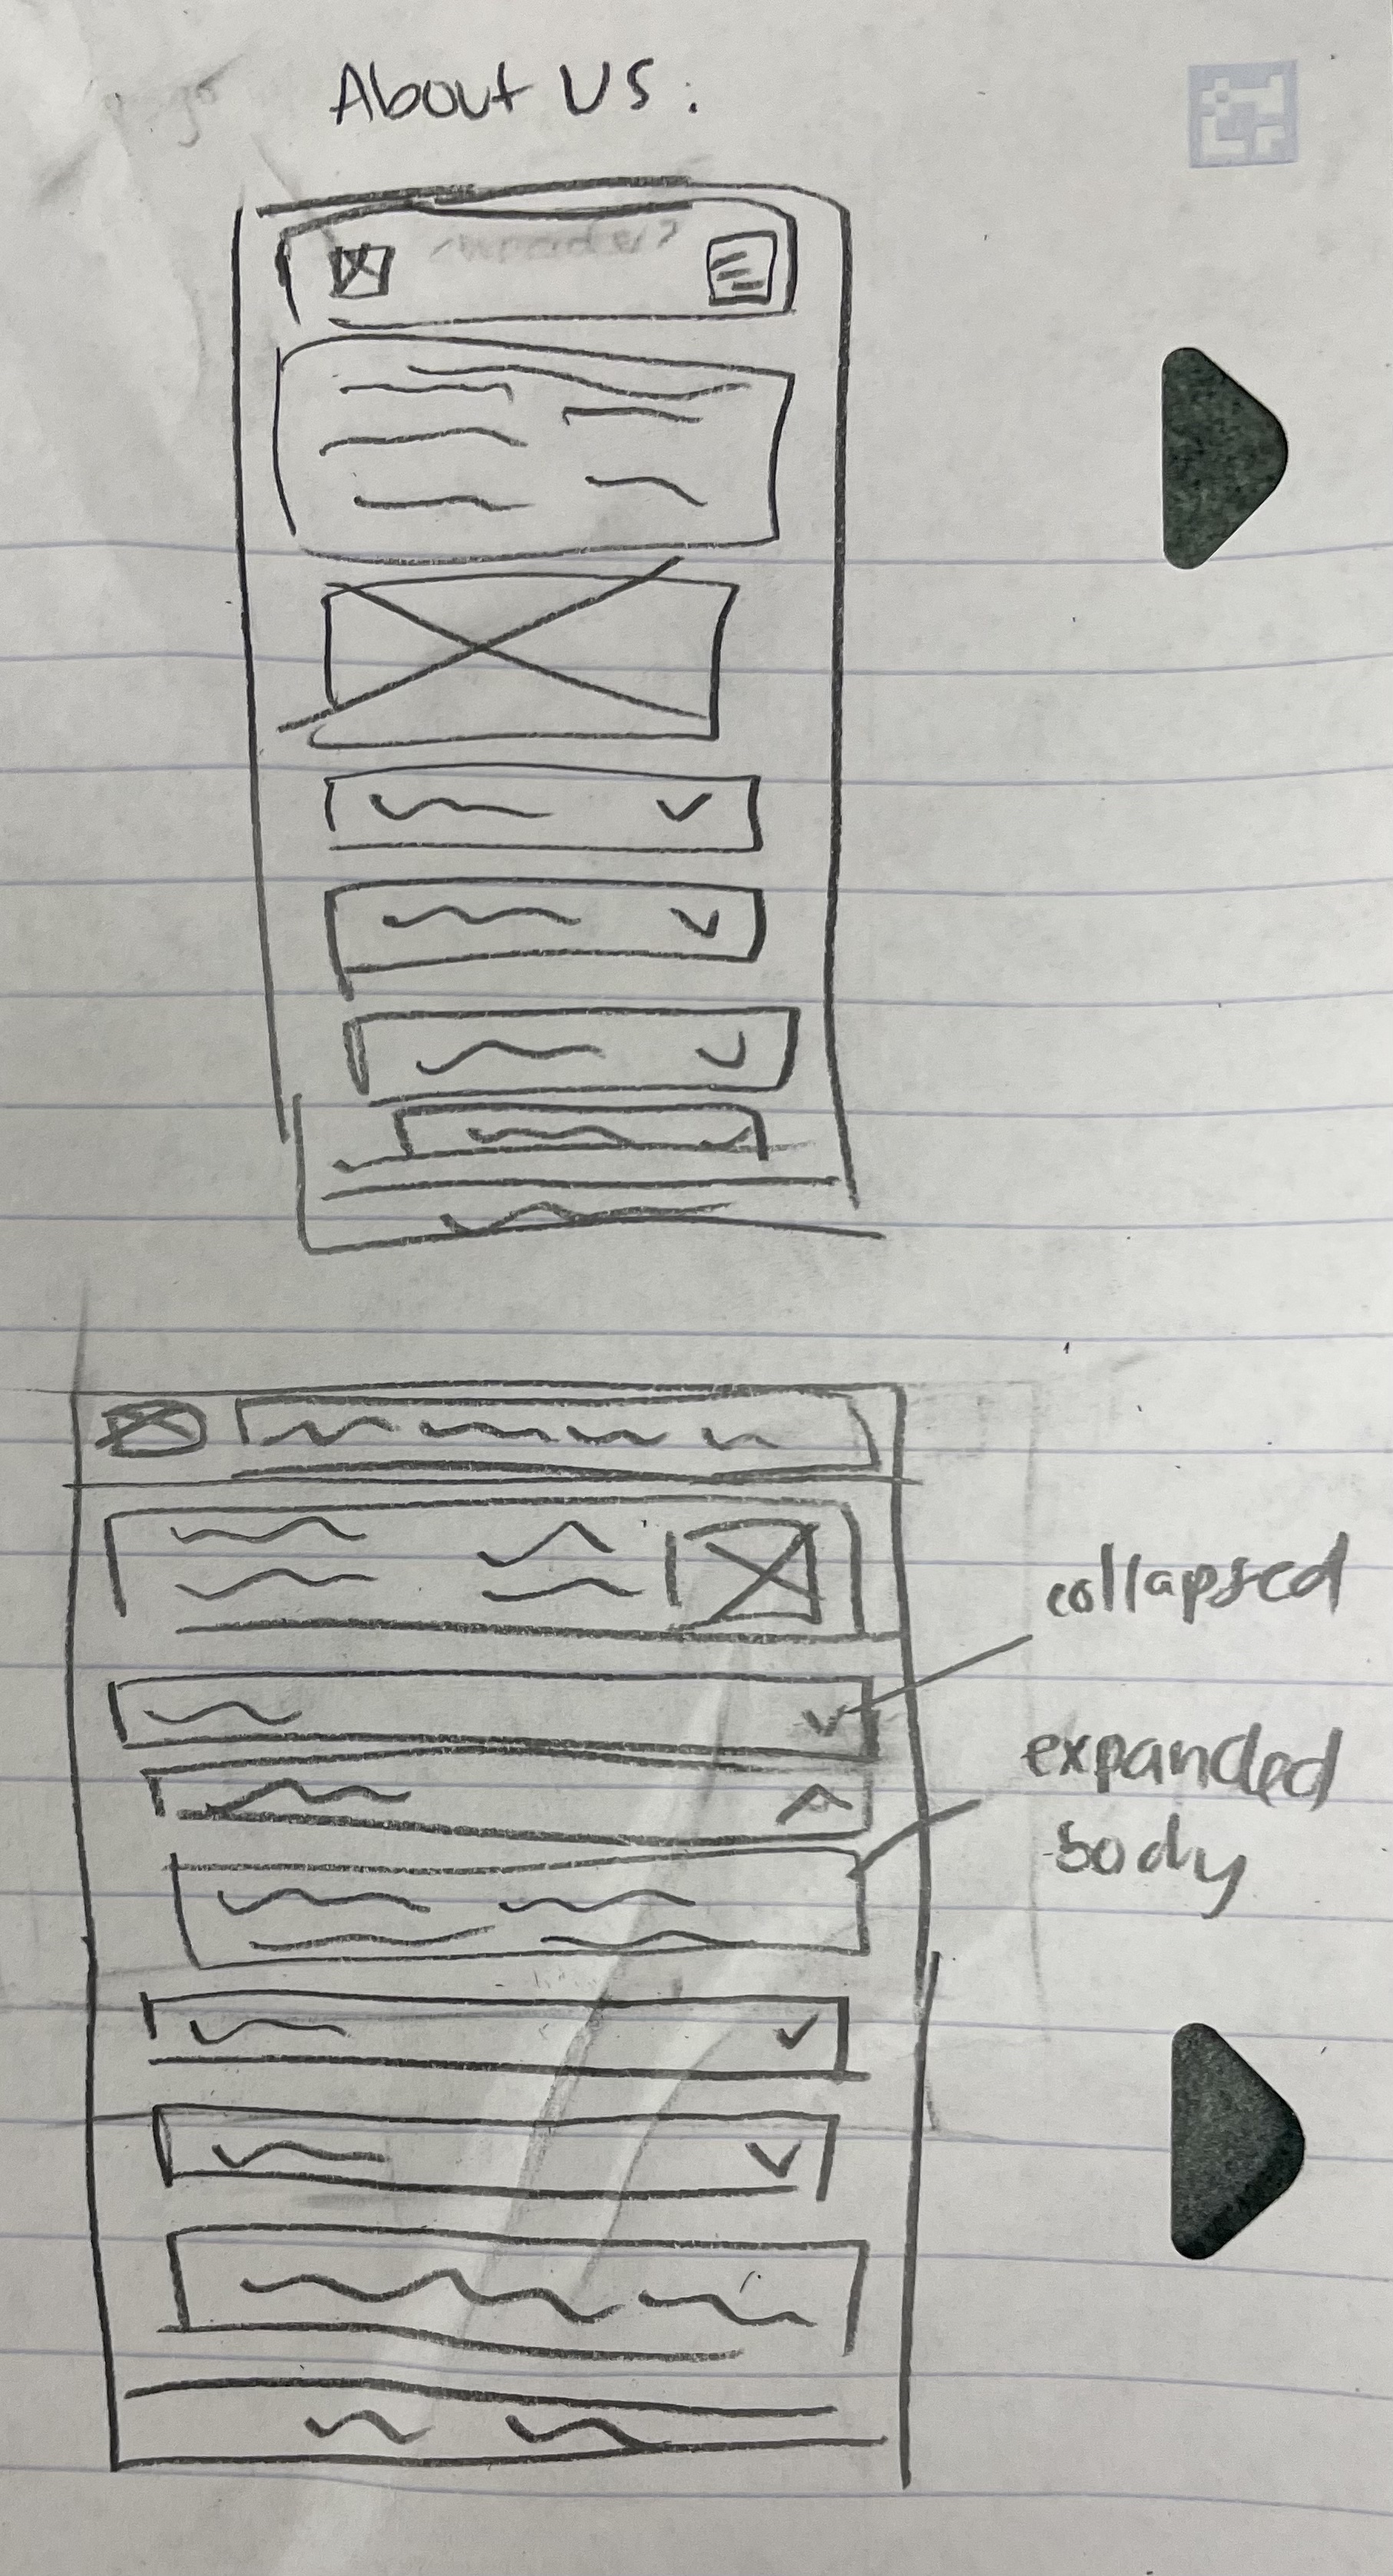 About US:
collapsed
expanded
body